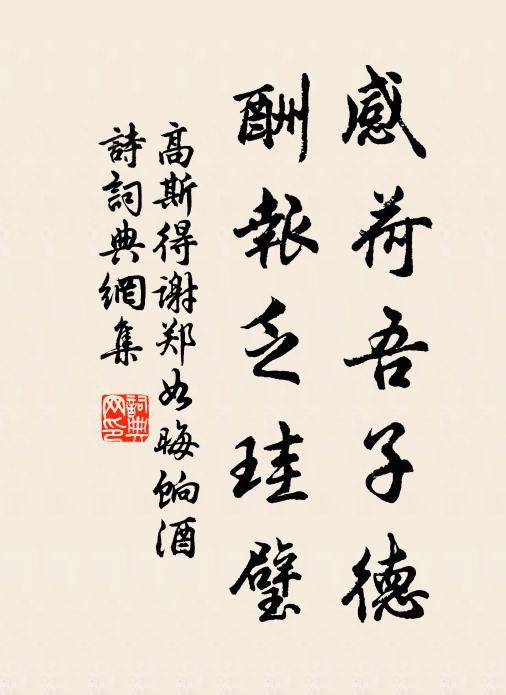 感荷吾子德
酬報乏珪璧
高斯得谢郑如晦饷酒
詩詞典網集
詞典网印